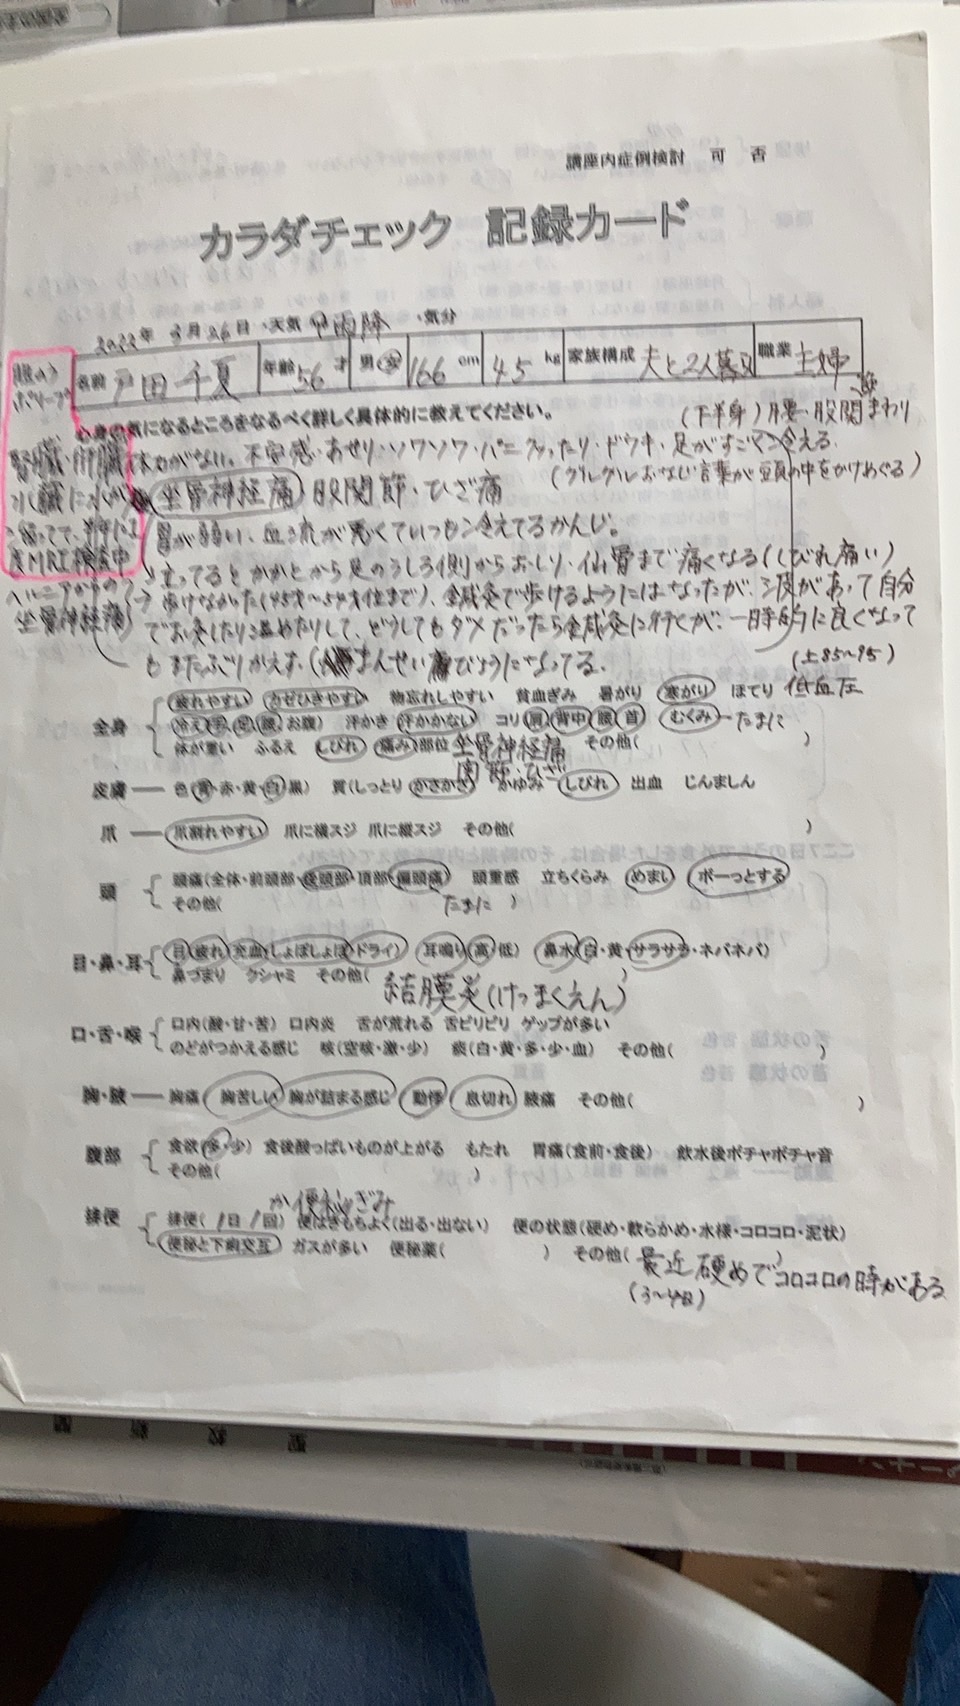 講座内症例検討　可　否
カラダチェック　記録カード
2022年 3月26日・天気 雨降 ・気分
名前 戸田 千夏 年齢 56 才 男・女 166 cm 45 kg 家族構成 夫と2人暮し 職業 主婦
胆のう
ポリープ
心身の気になるところをなるべく詳しく具体的に教えてください。
(下半身)腰・股関まわり
腎臓・肝臓
体力がない。不安感・あせり・ソワソワ・パニクったり・ドウキ・足がすごく冷える
すい臓に水が
坐骨神経痛 股関節・ひざ痛 (グルグルおなじ言葉が頭の中をかけめぐる)
溜ってて、半年に1
度MRI検査中
胃が弱い、血流が悪くていつも冷えてるかんじ。
立ってるとかかとから足のうしろ側からおしり・仙骨まで痛くなる(しびれ痛い)
ヘルニアからの
坐骨神経痛
→歩けなかった(45才～54才位まで)、金咸灸で歩けるようにはなったが、波があって自分
でお灸したり温めたりして、どうしてもダメだったら金咸灸に行くが、一時的に良くなって
もまたぶりかえす。(まんせいびょうになってる。
(上85～95)
全身 疲れやすい カゼひきやすい 物忘れしやすい 貧血ぎみ 暑がり 寒がり ほてり 低血圧
冷え(手・足・腰・お腹) 汗かき 汗かかない コリ(肩・背中・腰・首) むくみ たまに
体が重い ふるえ しびれ 痛み部位 坐骨神経痛 その他( )
関節・ひざ
皮膚 ― 色(青・赤・黄・白・黒) 質(しっとり・かさかさ) かゆみ しびれ 出血 じんましん
爪 ― 爪割れやすい 爪に横スジ 爪に縦スジ その他( )
頭 頭痛(全体・前頭部・後頭部・頂部・偏頭痛) 頭重感 立ちくらみ めまい ボーっとする
その他( たまに )
目・鼻・耳 目(疲れ・充血・しょぼしょぼ・ドライ) 耳鳴り(高・低) 鼻水(白・黄・サラサラ・ネバネバ)
鼻づまり クシャミ その他( )
結膜炎(けつまくえん)
口・舌・喉 口内(酸・甘・苦) 口内炎 舌が荒れる 舌ピリピリ ゲップが多い
のどがつかえる感じ 咳(空咳・激・少) 痰(白・黄・多・少・血) その他( )
胸・腋 ― 胸痛 胸苦しい 胸が詰まる感じ 動悸 息切れ 腋痛 その他( )
腹部 食欲(多・少) 食後酸っぱいものが上がる もたれ 胃痛(食前・食後) 飲水後ポチャポチャ音
その他( )
か便秘ぎみ
排便 排便( 1日 1回) 便はきもちよく(出る・出ない) 便の状態(硬め・軟らかめ・水様・コロコロ・泥状)
便秘と下痢交互 ガスが多い 便秘薬( ) その他( 最近硬めでコロコロの時がある
(3～4日)
聖教新聞